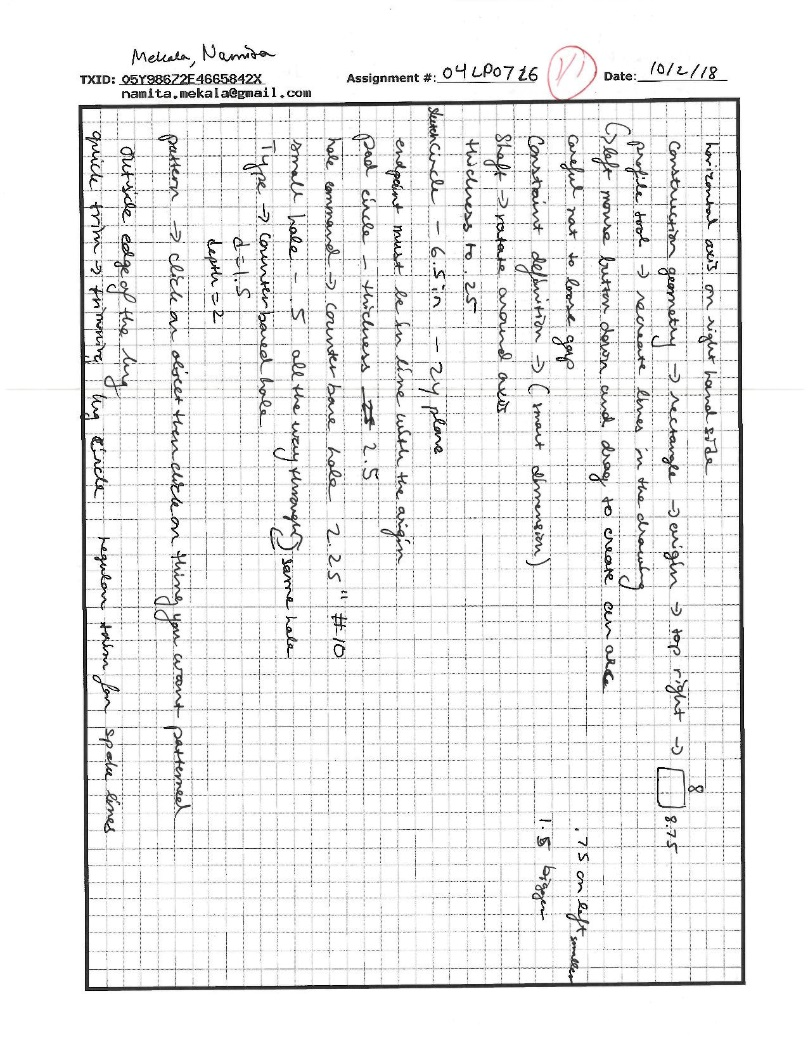 Mekala, Namita
TXID: 05Y98672E4665842X
Assignment #: 04LP0726
V1
Date: 10/2/18
namita.mekala@gmail.com
horizontal axis on right hand side
construction geometry → rectangle → origin → top right →
8
8.75
profile tool → recreate lines in the drawing
↳ left mouse button down and drag to create an arc
careful not to loose gap
.75 on left smaller
Constraint definition → (smart dimension)
1.5 bigger
Shaft → rotate around axis
thickness to .25
sketch circle - 6.5in - zy plane
endpoint must be in line with the origin
pad circle - thickness 2.5
hole command → counter bore hole 2.25" #10
small hole - .5 all the way through
same hole
Type → counterbored hole
d=1.5
depth = 2
pattern → click on object then click on thing you want patterned
outside edge of the lug
quick trim → trimming lug circle regular trim for spoke lines